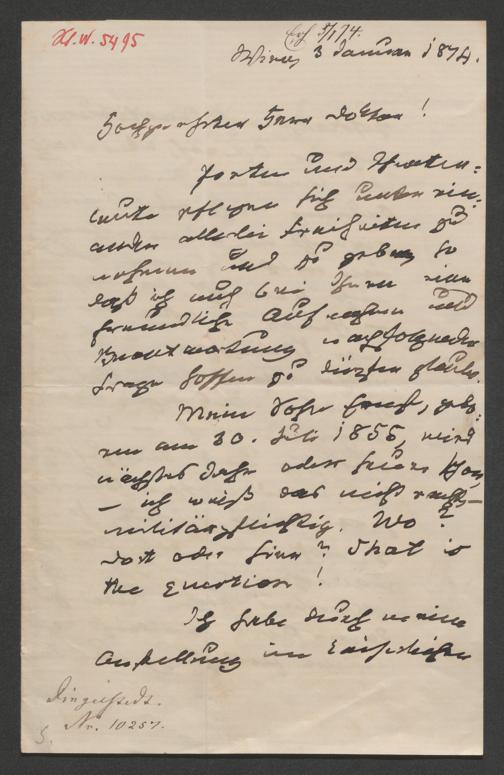 H.W. 5495
5/1 74.
Wien, 3 Januar 1874.
Hochgeehrter Herr Doktor!
Poeten und Theater-
leute pflegen sich unter ein-
ander allerlei Freiheiten zu
nehmen und zu geben, so
daß ich auch bei Ihnen eine
freundliche Aufnahme und
Beantwortung nachfolgender
Frage hoffen zu dürfen glaube.
Mein Sohn Ernst, gebo-
ren am 30. Juli 1855, wird
nächstes Jahr oder heuer schon
— ich weiß das nicht recht —
militärpflichtig. Wo?
Dort oder hier? That is
the question!
Ich habe durch meine
Anstellung im Kaiserlichen
Dingelstedt.
Nr. 10257.